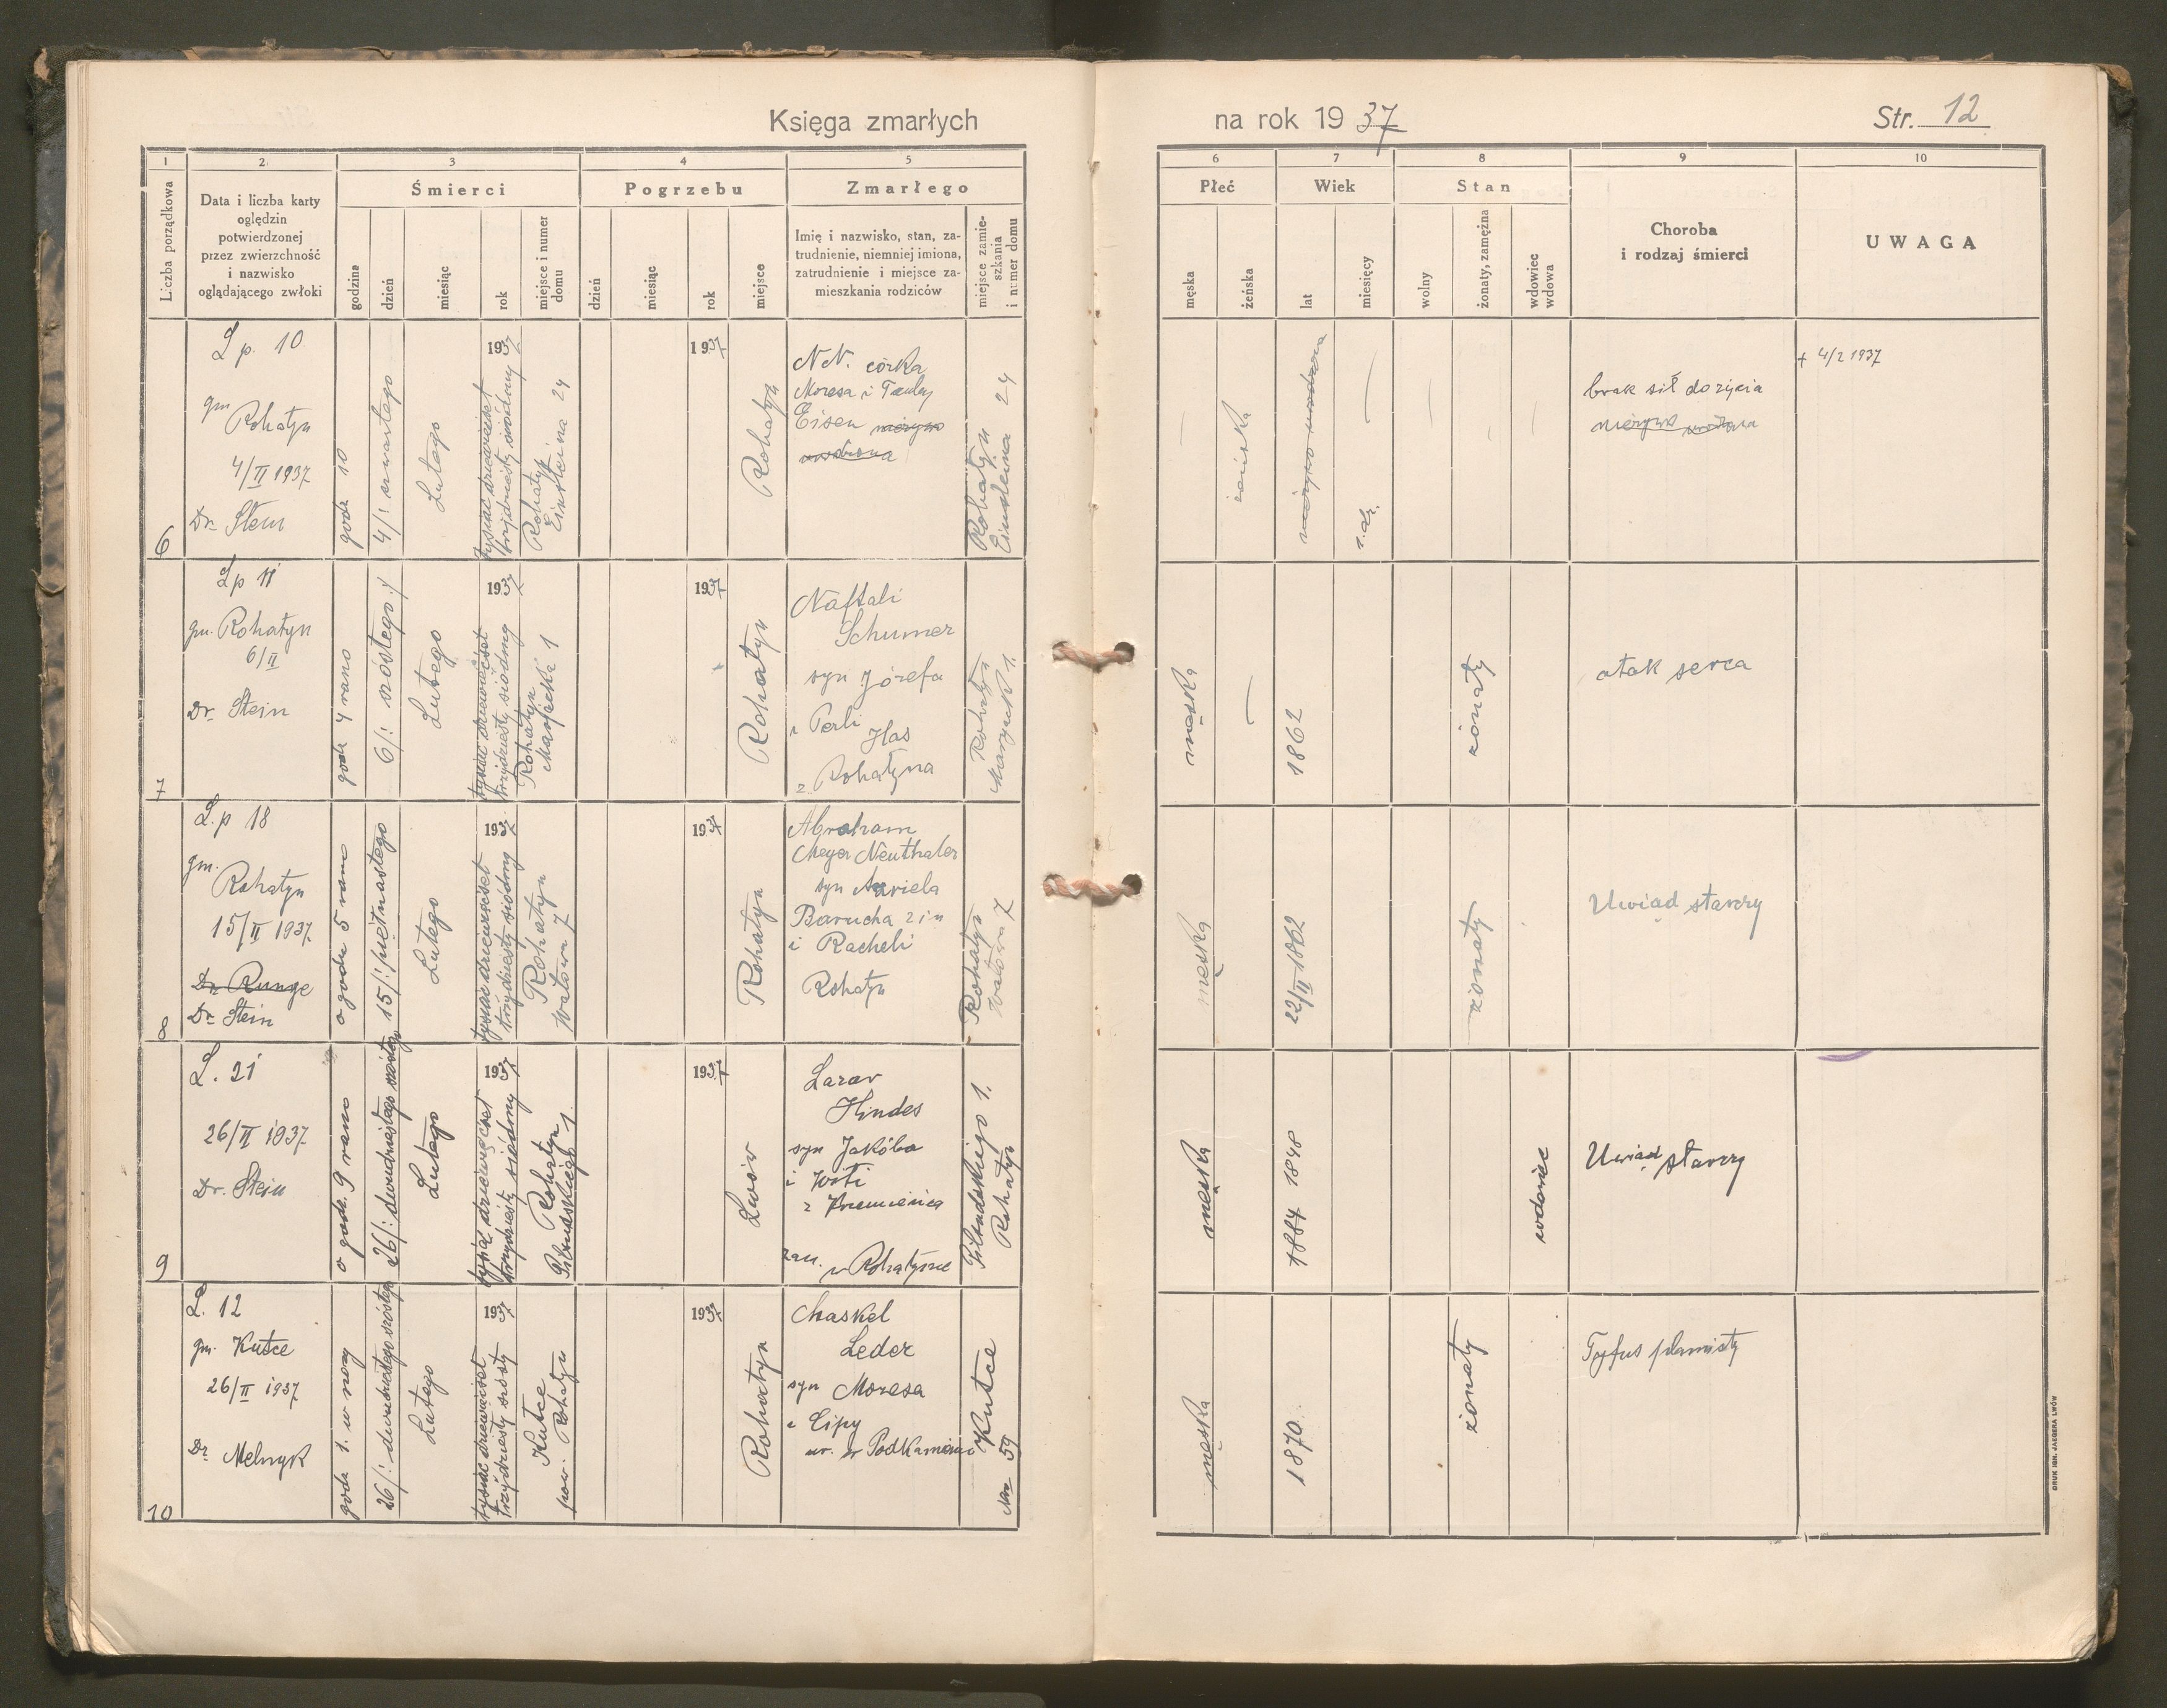 Księga zmarłych
na rok 1937
Str. 12
1
2
3
4
5
Liczba porządkowa
Data i liczba karty
oględzin
potwierdzonej
przez zwierzchność
i nazwisko
oglądającego zwłoki
Śmierci
godzina
dzień
miesiąc
rok
miejsce i numer
domu
Pogrzebu
dzień
miesiąc
rok
miejsce
Zmarłego
Imię i nazwisko, stan, za-
trudnienie, niemniej imiona,
zatrudnienie i miejsce za-
mieszkania rodziców
miejsce zamie-
szkania
i numer domu
6
7
8
9
10
Płeć
męska
żeńska
Wiek
lat
miesięcy
Stan
wolny
żonaty, zamężna
wdowiec
wdowa
Choroba
i rodzaj śmierci
UWAGA
6
Lp. 10
gm
Rohatyn
4/II 1937
Dr Stein
godz 10
4/: czwartego
Lutego
1937
tysiąc dziewięćset
trzydziesty siódmy
Rohatyn
Einsteina 24
1937
Rohatyn
NN. córka
Mozesa i Tauby
Eisen nieżywo
urodzona
Rohatyn
Einsteina 24
żeńska
nieżywo urodzona
brak sił do życia
+ 4/2 1937
7
Lp 11
gm. Rohatyn
6/II
Dr. Stein
godz 4 rano
6/: szóstego :/
Lutego
1937
tysiąc dziewięćset
trzydziesty siódmy
Rohatyn
1
1937
Rohatyn
Naftali
Schumer
syn Józefa
i Perli
Has
z Rohatyna
Rohatyn
1.
męska
1862
żonaty
atak serca
8
L.p 18
gm.
Rohatyn
15/II 1937.
Dr. Runge
Dr Stein
o godz 5 rano
15/: piętnastego
Lutego
1937
tysiąc dziewięćset
trzydziesty siódmy
Rohatyn
Wałowa 7
1937
Rohatyn
Abraham
Meyer Neuthaler
syn
Barucha 2 im
i Racheli
Rohatyn
Rohatyn
Wałowa 7
męska
22/II 1862
żonaty
Uwiąd starczy
9
L. 21
26/II 1937
Dr. Stein
o godz. 9 rano
26/: dwudziestego szóstego
Lutego
1937
tysiąc dziewięćset
trzydziesty siódmy
Rohatyn
Piłsudskiego 1.
1937
Lwów
Lazar
Hindes
syn Jakóba
i
z
zam. w Rohatynie
Piłsudskiego 1.
Rohatyn
męska
1884 1848
wdowiec
Uwiąd starczy
10
L. 12
gm. Kutce
26/II 1937
Dr Melnyk
godz 1. w nocy
26/: dwudziestego szóstego
Lutego
1937
tysiąc dziewięćset
trzydziesty szósty
Kutce
pow. Rohatyn
1937
Rohatyn
Chaskel
Leder
syn Mozesa
i Cipy
ur. w Podkamieniu
Kutce
Nr 59
męska
1870
żonaty
Tyfus plamisty
DRUK IGN. JAEGERA LWÓW